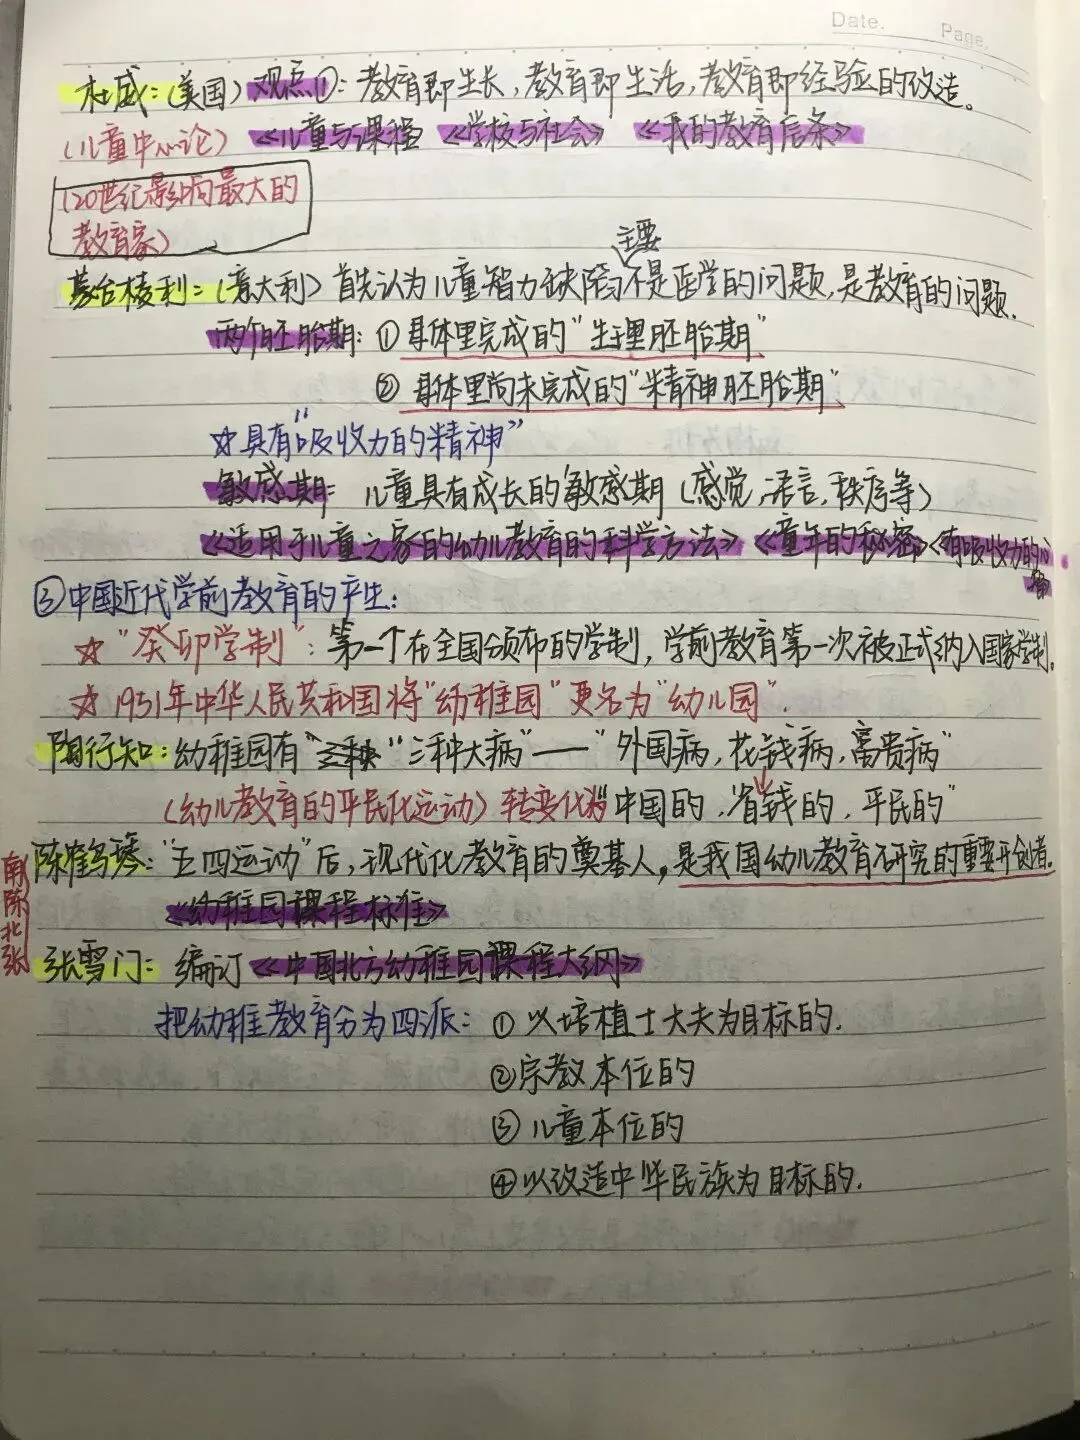 Date.    Page.
杜威：（美国）观点①：教育即生长，教育即生活，教育即经验的改造。
（儿童中心论）《儿童与课程》《学校与社会》《我的教育信条》
（20世纪影响最大的
教育家）
主要
蒙台梭利：（意大利）首先认为儿童智力缺陷不是医学的问题，是教育的问题．
两个胚胎期：①身体里完成的“生理胚胎期”
②身体里尚未完成的“精神胚胎期”
☆具有“吸收力的精神”
敏感期：儿童具有成长的敏感期（感觉，语言，秩序等）
《适用于儿童之家的幼儿教育的科学方法》《童年的秘密》《有吸收力的心
③中国近代学前教育的产生：
☆“癸卯学制”：第一个在全国颁布的学制，学前教育第一次被正式纳入国家学制．
☆1951年中华人民共和国将“幼稚园”更名为“幼儿园”．
陶行知：幼稚园有“三种大病”——“外国病，花钱病，富贵病”
（幼儿教育的平民化运动）转变化为“中国的，省钱的，平民的”
陈鹤琴：“五四运动”后，现代化教育的奠基人，是我国幼儿教育研究的重要开创者．
南陈北张
《幼稚园课程标准》
张雪门：编订《中国北方幼稚园课程大纲》
把幼稚教育分为四派：①以培植士大夫为目标的．
②宗教本位的
③儿童本位的
④以改造中华民族为目标的．